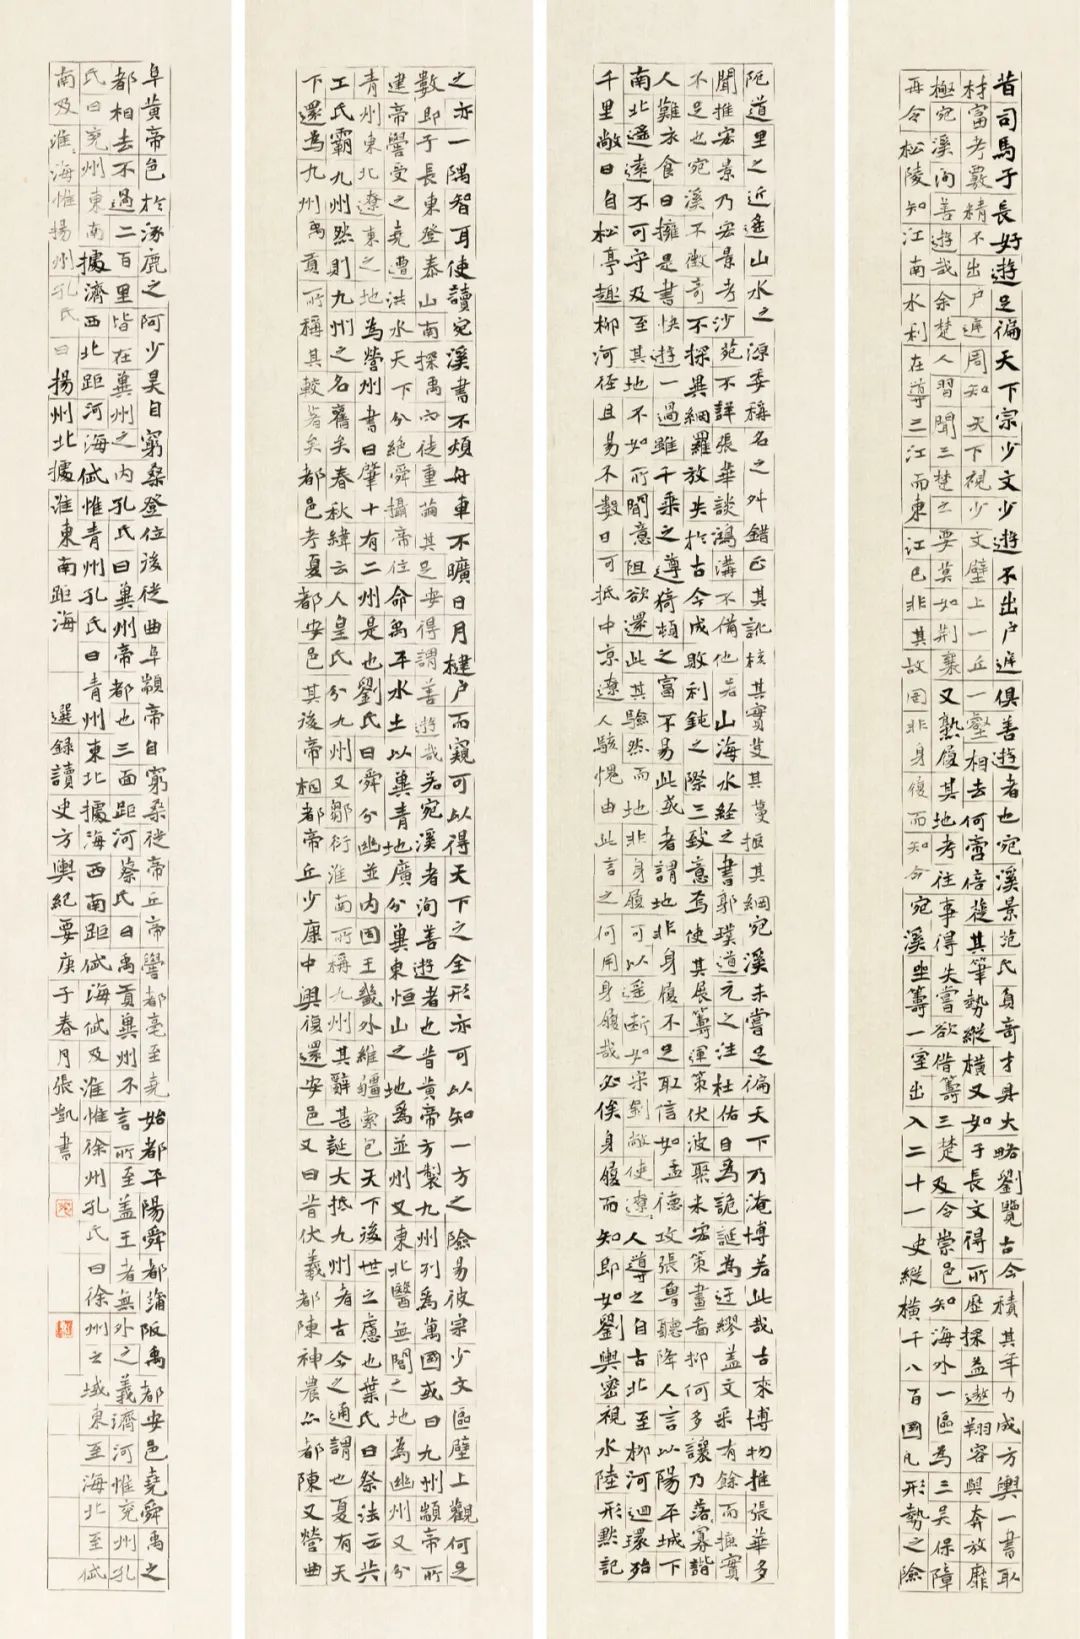 昔司馬子長好遊足徧天下宗少文少遊不出户遅俱善遊者也宛溪景范氏負奇才具大略劉覽古今積其年力成方輿一書取
材富考覈精不出户遅周知天下視少文壁上一丘一壑相去何啻倍蓰其筆勢縱橫又如子長文得所歷探益遨翔容與奔放靡
極宛溪洵善遊哉余楚人習聞三楚之要莫如荆襄又熟履其地考往事得失嘗欲借籌三楚及令崇邑知海外一區為三吴保障
再令松陵知江南水利在導三江而東江已非其故固非身履而知今宛溪坐籌一室出入二十一史縱横千八百國凡形勢之險
阨道里之近遥山水之源委稱名之舛錯正其訛核其實芟其蔓振其綱宛溪未嘗足徧天下乃淹博若此哉古來博物推張華多
聞推宏景乃宏景考沙苑不詳張華談鴻溝不備他若山海水經之書郭璞道元之注杜佑目為詭誕為迂繆蓋文采有餘而摭實
不足也宛溪不徵奇不探異網羅放失於古今成敗利鈍之際三致意焉使其展籌運策伏波聚米宏策畫畨抑何多讓乃落寡諧
人難衣食日擁是書快遊一過雖千乘之尊猗頓之富不易此或者謂地非身履不足取信如孟德攻張魯聽降人言以陽平城下
南北遥遠不可守及至其地不如所聞意阻欲還此其驗然而地非身履可以遥断如宋劉敞使遼人導之自古北至柳河迴環殆
千里敞曰自松亭趨柳河徑且易不數日可抵中京遼人駭愧由此言之何用身履哉必俟身履而知即如劉輿密視水陸形默記
之亦一隅智耳使讀宛溪書不煩舟車不曠日月楗户而窺可以得天下之全形亦可以知一方之險易彼宗少文區壁上觀何足
數即子長東登泰山南探禹穴徒重繭其足安得謂善遊哉若宛溪者洵善遊者也昔黄帝方製九州列為萬國或曰九州顓帝所
建帝嚳受之堯遭洪水天下分絶舜攝帝位命禹平水土以冀青地廣分冀東恒山之地為並州又東北醫無閭之地為幽州又分
青州東北遼東之地為營州書曰肇十有二州是也劉氏曰舜分幽並内固王畿外維疆索包天下後世之慮也葉氏曰祭法云共
工氏霸九州然則九州之名舊矣春秋緯云人皇氏分九州又鄒衍淮南所稱九州其辭甚誕大抵九州者古今之通謂也夏有天
下還為九州禹貢所稱其較著矣都邑考夏都安邑其後帝相都帝丘少康中興復還安邑又曰昔伏羲都陳神農亦都陳又營曲
阜黄帝邑於涿鹿之阿少昊自窮桑登位後徙曲阜顓帝自窮桑徙帝丘帝嚳都亳至堯始都平陽舜都蒲阪禹都安邑堯舜禹之
都相去不過二百里皆在冀州之内孔氏曰冀州帝都也三面距河蔡氏曰禹貢冀州不言所至蓋王者無外之義濟河惟兖州孔
氏曰兖州東南據濟西北距河海岱惟青州孔氏曰青州東北據海西南距岱海岱及淮惟徐州孔氏曰徐州之域東至海北至岱
南及淮淮海惟揚州孔氏曰揚州北據淮東南距海
選録讀史方輿紀要庚子春月張凱書